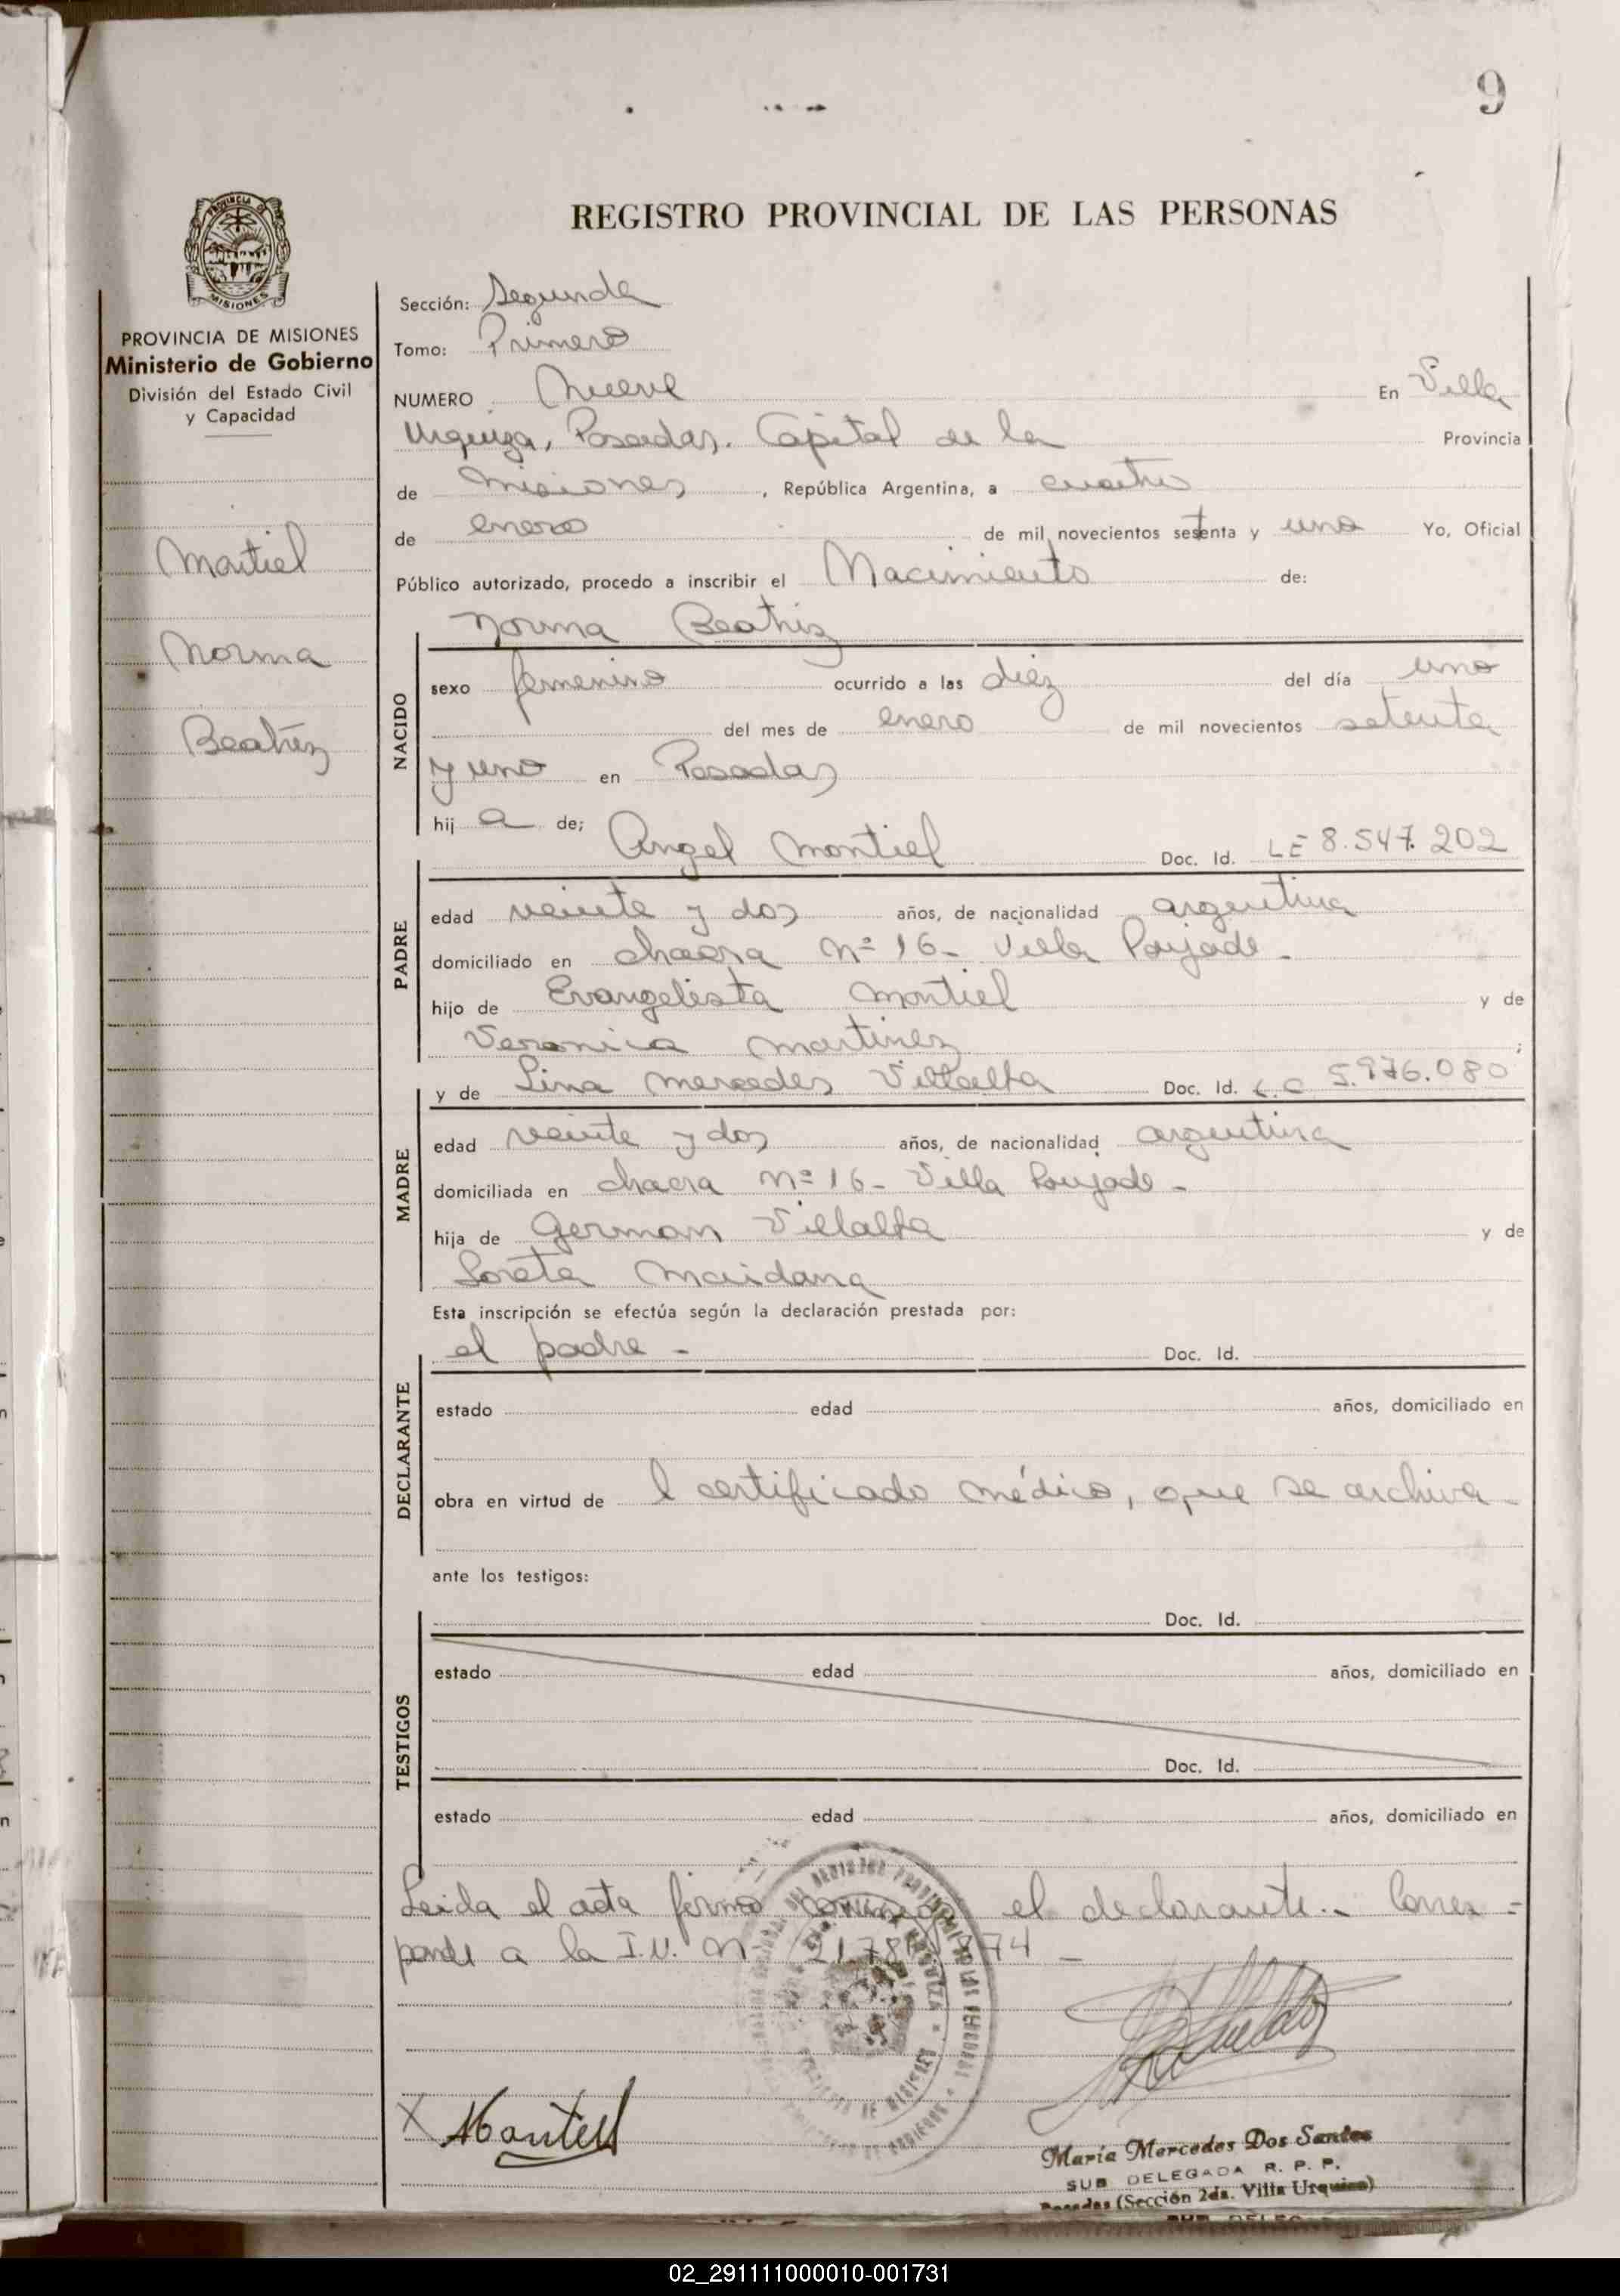 9
REGISTRO PROVINCIAL DE LAS PERSONAS
PROVINCIA DE MISIONES
Ministerio de Gobierno
División del Estado Civil
y Capacidad
Montiel
Norma
Beatriz
Sección: Segunda
Tomo: Primero
NUMERO Nueve En Villa
Urquiza, Posadas. Capital de la Provincia
de Misiones, República Argentina, a cuatro
de enero de mil novecientos setenta y uno Yo, Oficial
Público autorizado, procedo a inscribir el Nacimiento de:
Norma Beatriz
NACIDO
sexo femenino ocurrido a las diez del día uno
del mes de enero de mil novecientos setenta
y uno en Posadas
hija de; Angel Montiel Doc. Id. LE 8.547.202
PADRE
edad veinte y dos años, de nacionalidad argentina
domiciliado en chacra Nº 16- Villa Poujade-
hijo de Evangelista Montiel y de
Veronica Martinez;
y de Lina Mercedes Villalba Doc. Id. L.C 5.976.080
MADRE
edad veinte y dos años, de nacionalidad argentina
domiciliada en chacra Nº 16- Villa Poujade-
hija de German Villalba y de
Loreta Maidana
Esta inscripción se efectúa según la declaración prestada por:
el padre - Doc. Id.
DECLARANTE
estado edad años, domiciliado en
obra en virtud de l certificado médico, que se archiva-
ante los testigos:
Doc. Id.
TESTIGOS
estado edad años, domiciliado en
Doc. Id.
estado edad años, domiciliado en
Leida el acta firma conmigo el declarante.- Corres=
ponde a la I.U. Nº
X Montiel
María Mercedes Dos Santos
SUB DELEGADA R. P. P.
Posadas (Sección 2da. Villa Urquiza)
02_291111000010-001731